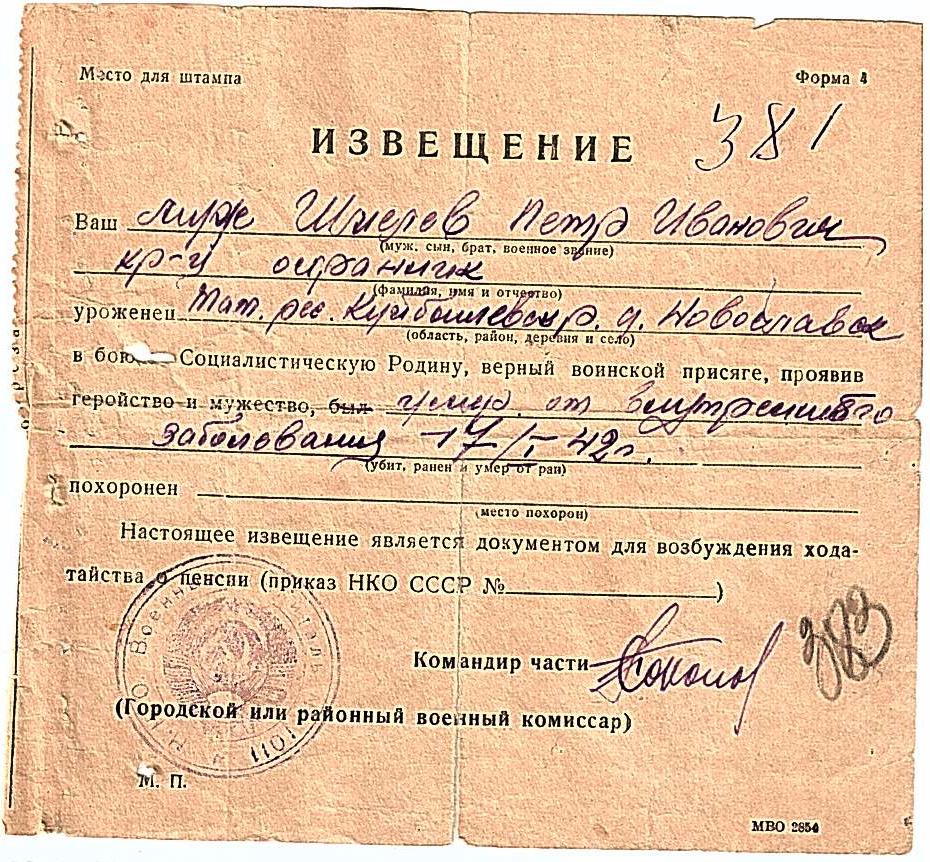 Место для штампа
Форма 4
ИЗВЕЩЕНИЕ
381
Ваш муж Шмелев Петр Иванович
(муж, сын, брат, военное звание)
кр-ц
(фамилия, имя и отчество)
уроженец Тат. рес. Куйбышевск р. д. Новославск
(область, район, деревня и село)
в бою Социалистическую Родину, верный воинской присяге, проявив
геройство и мужество, был умер от внутреннего
заболевания 17/I-42г.
(убит, ранен и умер от ран)
похоронен
(место похорон)
Настоящее извещение является документом для возбуждения хода-
тайства о пенсии (приказ НКО СССР № )
Командир части Соколов
383
(Городской или районный военный комиссар)
НКО Военный госпиталь 1011
М. П.
МВО 2854